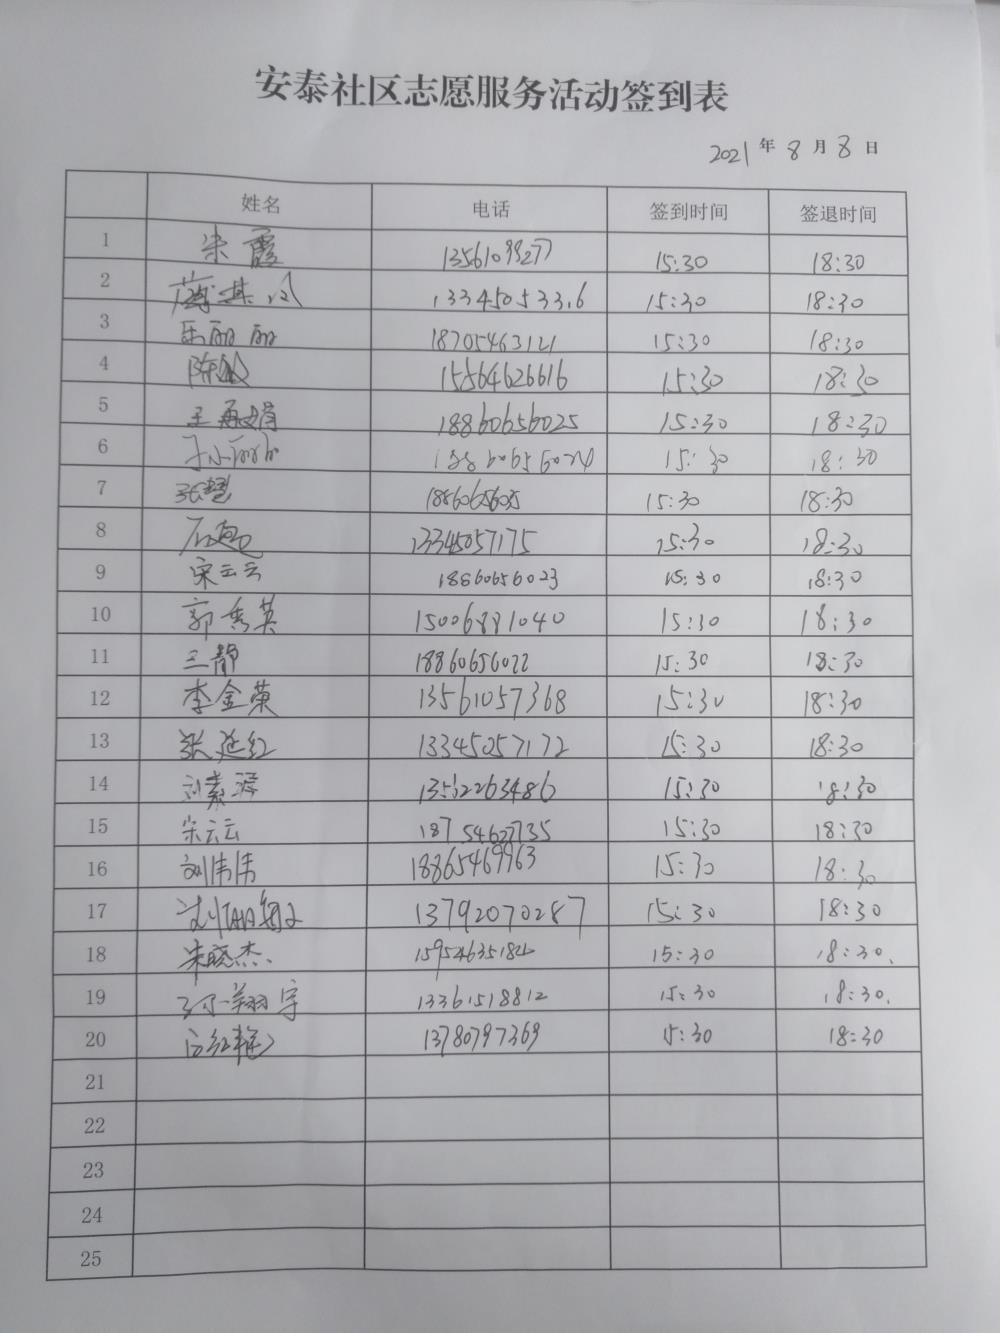 安泰社区志愿服务活动签到表
2021年8月8日
姓名 电话 签到时间 签退时间
1 朱霞 13561099277 15:30 18:30
2 13345053316 15:30 18:30
3 丽丽 18705463121 15:30 18:30
4 陈 15564626616 15:30 18:30
5 王再娟 18860656025 15:30 18:30
6 18860656024 15:30 18:30
7 张慧 15:30 18:30
8 石 13345057175 15:30 18:30
9 宋云云 18860656023 15:30 18:30
10 郭秀英 15006881040 15:30 18:30
11 王静 18860656022 15:30 18:30
12 李金荣 13561057368 15:30 18:30
13 张延红 13345057172 15:30 18:30
14 刘素 15:30 18:30
15 宋云云 18754627735 15:30 18:30
16 刘伟伟 18865469963 15:30 18:30
17 13792070287 15:30 18:30
18 朱晓杰 15954635182 15:30 18:30
19 翔宇 13361518812 15:30 18:30
20 13780797369 15:30 18:30
21
22
23
24
25